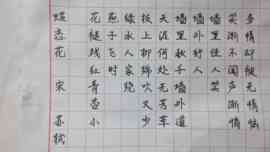 蝶恋花 宋 苏轼
花褪残红青杏小
燕子飞时
绿水人家绕
枝上柳绵吹又少
天涯何处无芳草
墙里秋千墙外道
墙外行人
墙里佳人笑
笑渐不闻声渐悄
多情却被无情恼